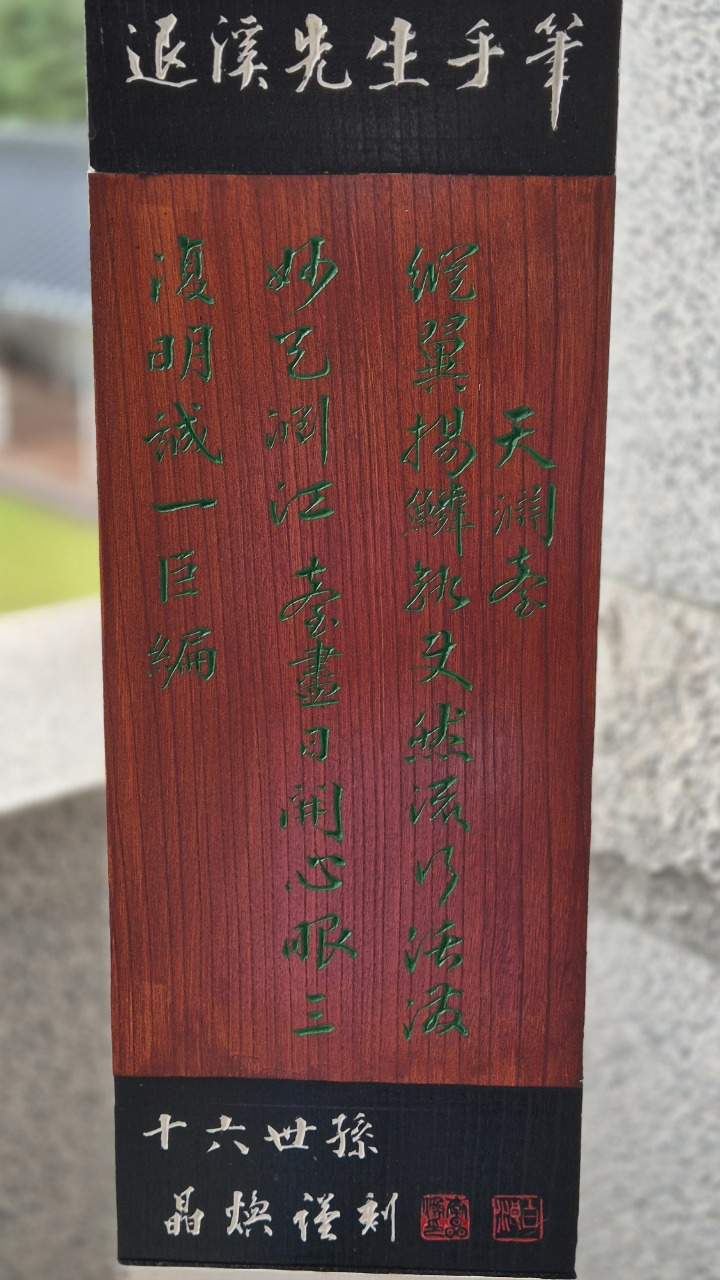 退溪先生手筆
天淵臺
縱翼揚鱗孰使然流行活潑
妙天淵江臺盡日開心眼三
復明誠一巨編
十六世孫
晶煥謹刻